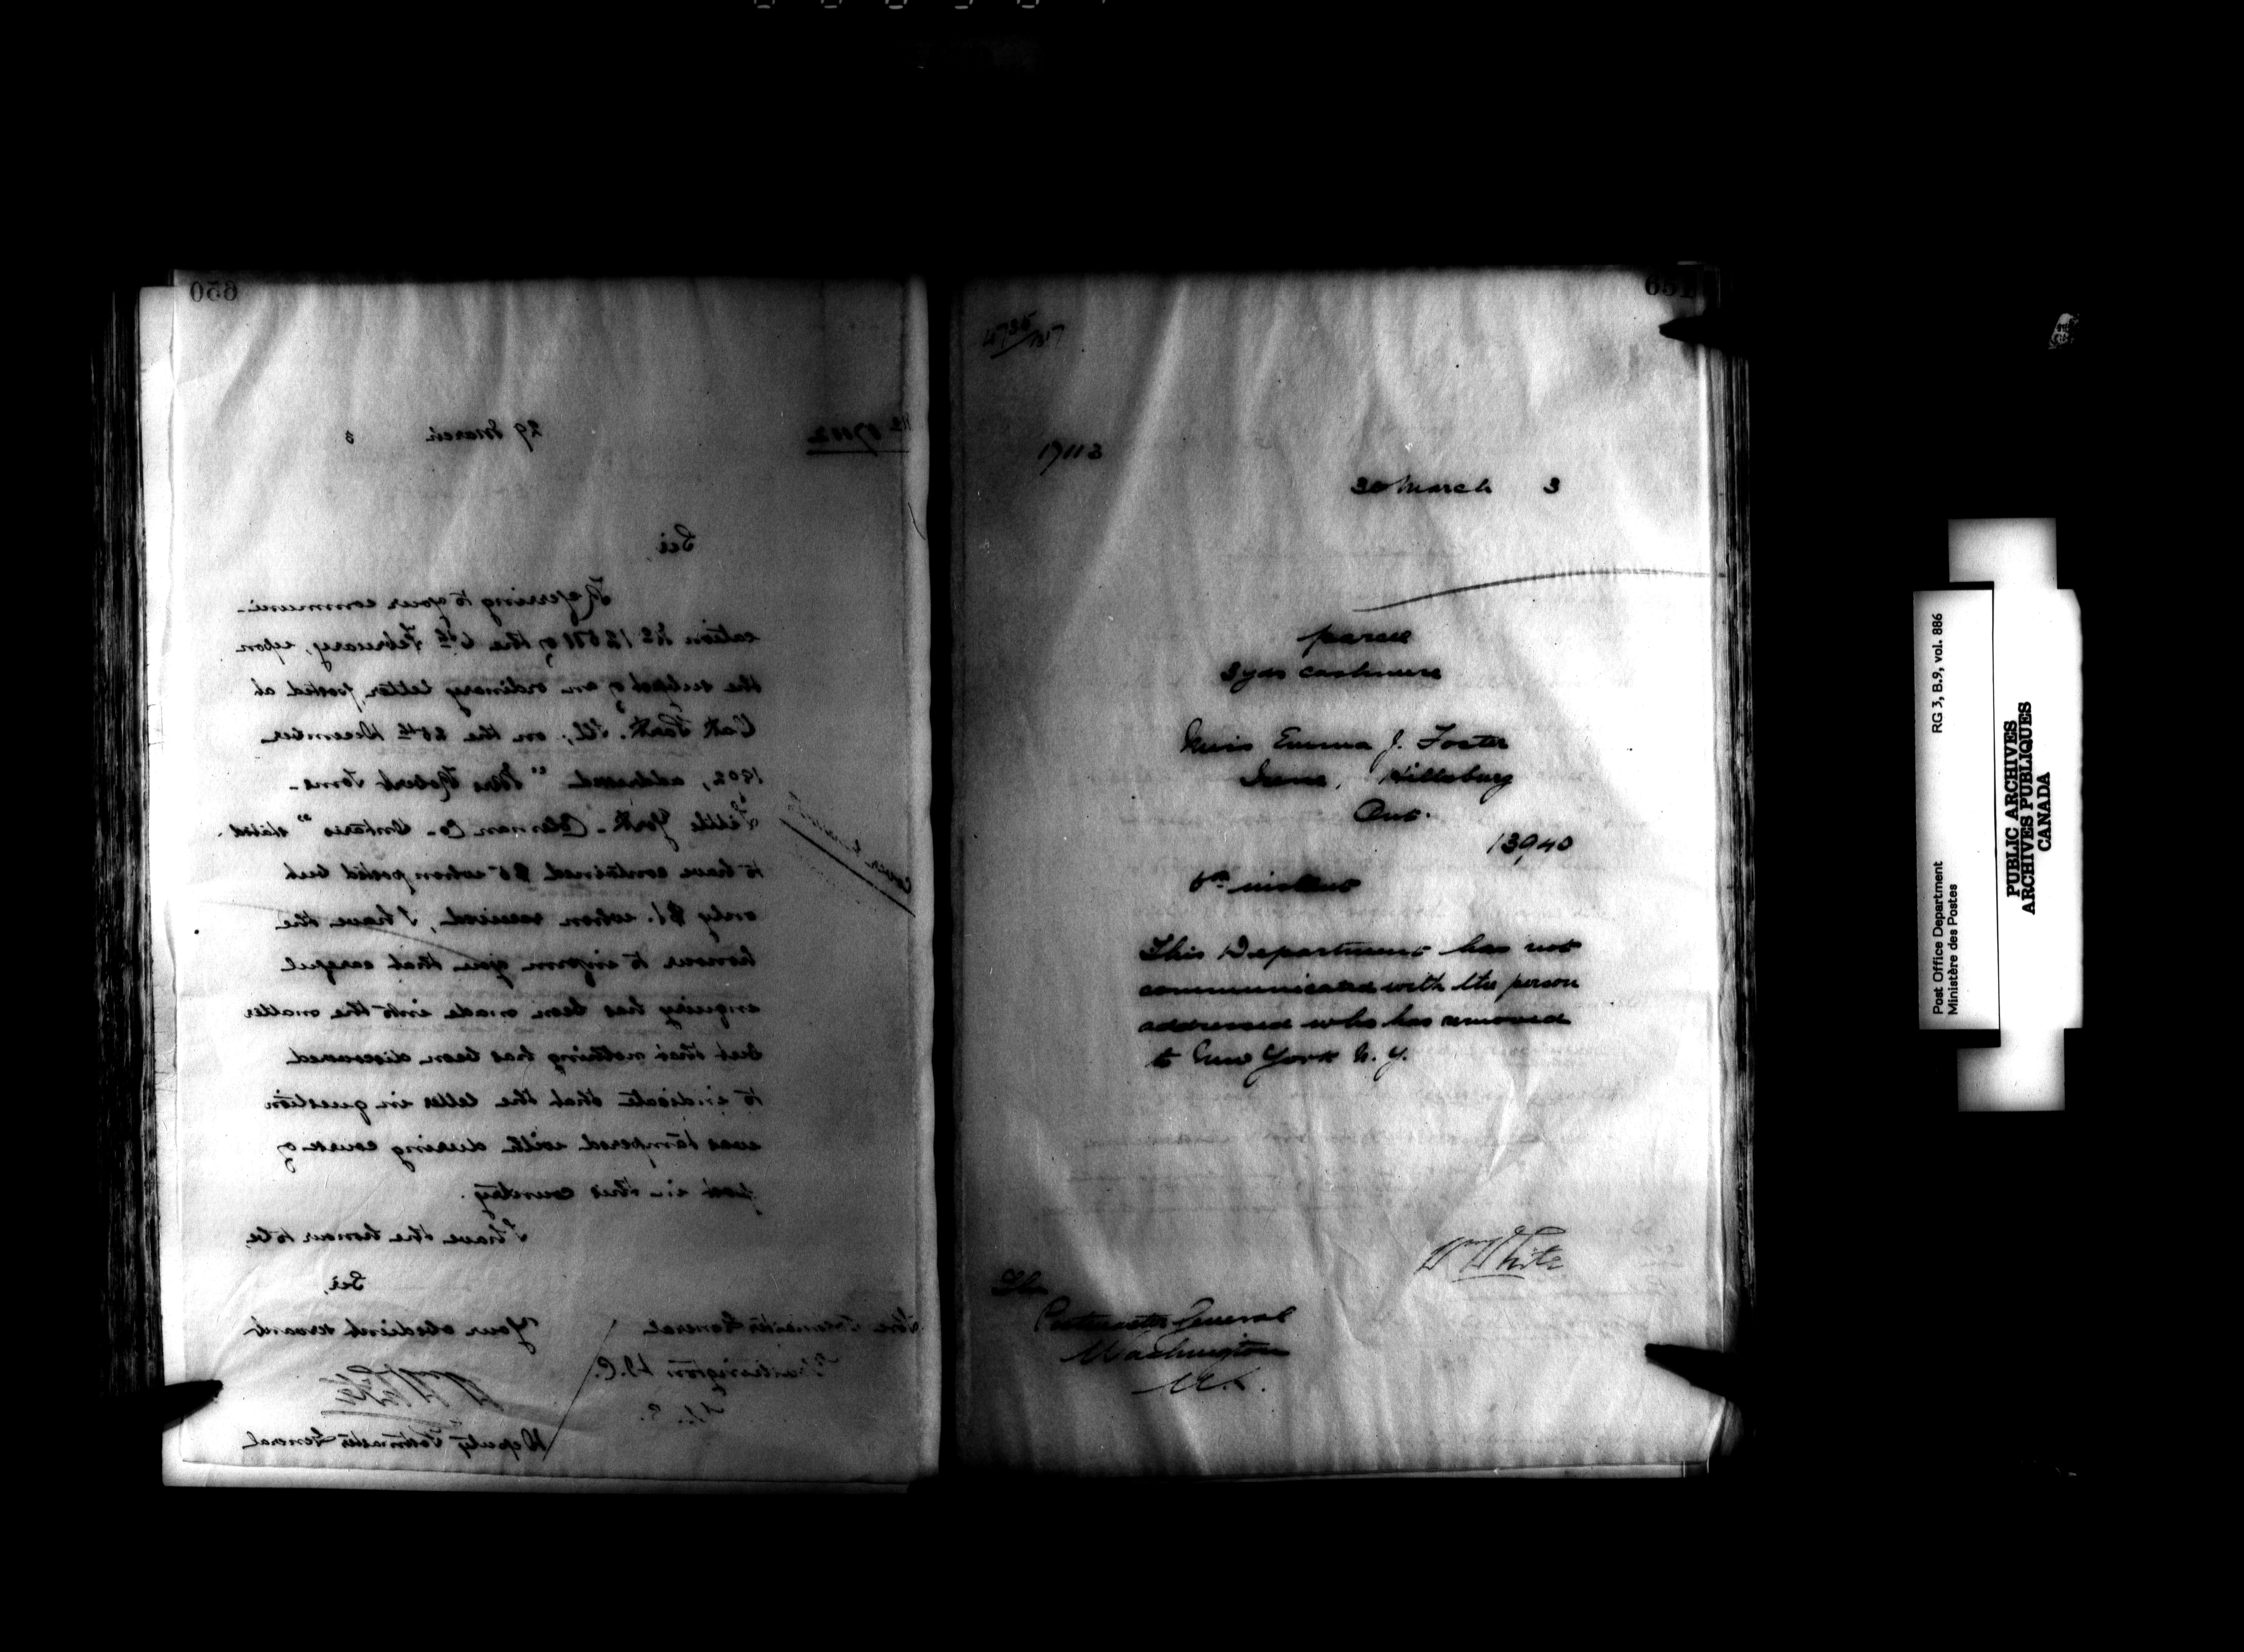 650
No 17112
29 March 3
Sir,
Referring to your communi-
cation No 12571 of the 6th February, upon
the subject of an ordinary letter, posted at
Oak Park, Ill., on the 26th December
1902, addressed "Mrs Robert
Little York - Co. Ontario" stated
to have contained $5 when posted but
only $1. when received, I have the
honour to inform you that careful
enquiry has been made into the matter
but that nothing has been discovered
to indicate that the letter in question
was tampered with during course of
post in this country.
I have the honour to be,
Sir,
Your obedient servant
Deputy Postmaster General
The Postmaster General
Washington D.C.
U.S.
651
4735/1317
17113
30 March 3
parcel
3 yds cashmere
Miss Emma J. Foster
Hillsburg
Ont.
13940
6th instant
This Department has not
communicated with the person
addressed who has removed
to New York N.Y.
Wm White
The
Postmaster General
Washington
U.S.
Post Office Department
Ministère des Postes
RG 3, B.9, vol. 886
PUBLIC ARCHIVES
ARCHIVES PUBLIQUES
CANADA